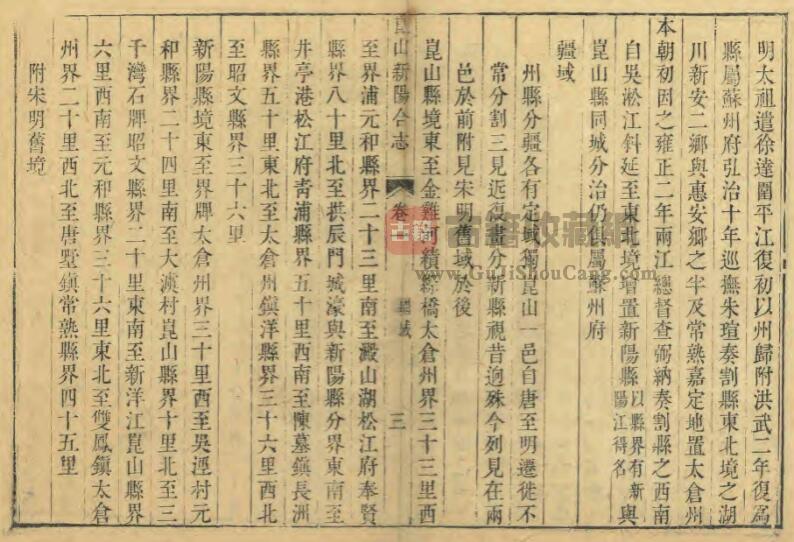 明太祖遣徐達圍平江復初以州歸附洪武二年復爲
縣屬蘇州府弘治十年巡撫朱瑄奏割縣東北境之湖
川新安二鄉與惠安鄉之半及常熟嘉定地置太倉州
本朝初因之雍正二年兩江總督查弼納奏割縣之西南
自吳淞江斜延至東北境增置新陽縣以縣界有新陽江得名與
崑山縣同城分治仍俱屬蘇州府
疆域
州縣分疆各有定域獨崑山一邑自唐至明遷徙不
常分割三見近復畫分新縣視昔迥殊今列見在兩
邑於前附見宋明舊域於後
崑山縣境東至金雞河績緣橋太倉州界三十三里西
崑山新陽合志
卷一
疆域
三
至界浦元和縣界二十三里南至澱山湖松江府奉賢
縣界八十里北至拱辰門城濠與新陽縣分界東南至
井亭港松江府青浦縣界五十里西南至陳墓鎮長洲
縣界五十里東北至太倉州鎮洋縣界三十六里西北
至昭文縣界三十六里
新陽縣境東至界牌太倉州界三十里西至吳涇村元
和縣界二十四里南至大漁村崑山縣界十里北至三
千灣石牌昭文縣界二十里東南至新洋江崑山縣界
六里西南至元和縣界三十六里東北至雙鳳鎮太倉
州界二十里西北至唐墅鎮常熟縣界四十五里
附宋明舊境
古籍
古籍收藏網
www.GuJiShouCang.com